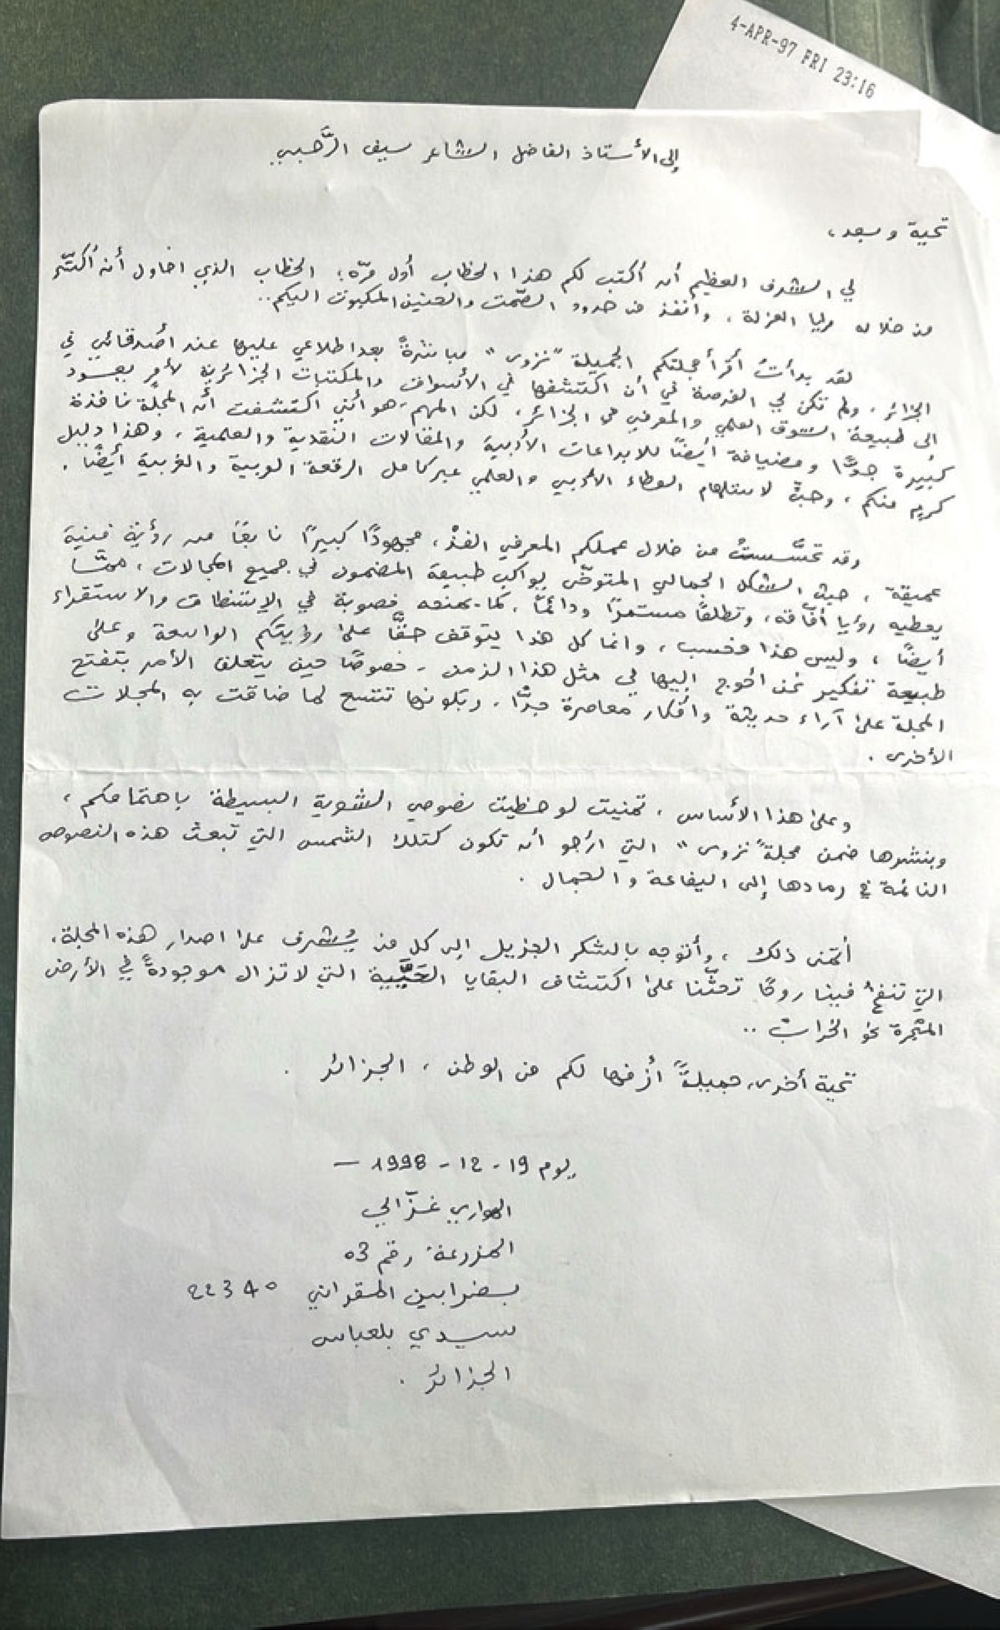 4-APR-97 FRI 23:16
إلى الأستاذ الفاضل الشاعر سيف الرَّحبي
تحية وبعد،
لي الشرف العظيم أن أكتب لكم هذا الخطاب أول مرّة؛ الخطاب الذي احاول أن
من خلاله مرايا العزلة، وأنفذ من حدود الصّمت والحنين المكبوت اليكم..
لقد بدأتُ أقرأ مجلتكم الجميلة "نزوى" مباشرةً بعد اطلاعي عليها عند أصدقائي في
الجزائر، ولم تكن لي الفرصة في أن اكتشفها في الأسواق والمكتبات الجزائرية لأمرٍ يعود
إلى طبيعة السوق العلمي والمعرفي في الجزائر، لكن المهم هو أنني اكتشفت أن المجلة نافذة
كبيرة جدًّا ومضيافة أيضًا للابداعات الأدبية والمقالات النقدية والعلمية، وهذا دليل
كرمٍ منكم، وحبٌّ لاستلهام العطاء الأدبي والعلمي عبر كامل الرقعة العربية والغربية أيضًا.
وقد تحسَّستُ من خلال عملكم المعرفي الفذّ، مجهودًا كبيرًا نابعًا من رؤية فنية
عميقة، حيث الشكل الجمالي المتوخّى يواكب طبيعة المضمون في جميع المجالات، ممّا
يعطيه رؤيا أفّاقة، وتطلعًا مستمرًا ودائمًا، كما يمنحه خصوبة في الإستنطاق والاستقراء
أيضًا، وليس هذا فحسب، وانما كل هذا يتوقف حقًّا على رؤيتكم الواسعة وعلى
طبيعة تفكير نحن أحوج إليها في مثل هذا الزمن - خصوصًا حين يتعلق الأمر بتفتح
المجلة على آراء حديثة وأفكار معاصرة جدًّا، وبكونها تتسع لما ضاقت به المجلات
الأخرى.
وعلى هذا الأساس، تمنيت لو حظيت نصوصي الشعرية البسيطة باهتمامكم،
وبنشرها ضمن مجلة "نزوى" التي أرجو أن تكون كتلك الشمس التي تبعث هذه النصوص
النائمة في رمادها إلى اليفاعة والجمال.
أتمنى ذلك، وأتوجه بالشكر الجزيل إلى كل من يُشرف على اصدار هذه المجلة،
التي تنفخُ فينا روحًا تحثّنا على اكتشاف البقايا الحَيَّة التي لا تزال موجودةً في الأرض
نحو الخراب..
تحية أخرى، جميلةً أزفها لكم من الوطن، الجزائر.
يوم 19 - 12 - 1998 -
الهواري غزّالي
المزرعة رقم 03
22340
سيدي بلعباس
الجزائر.